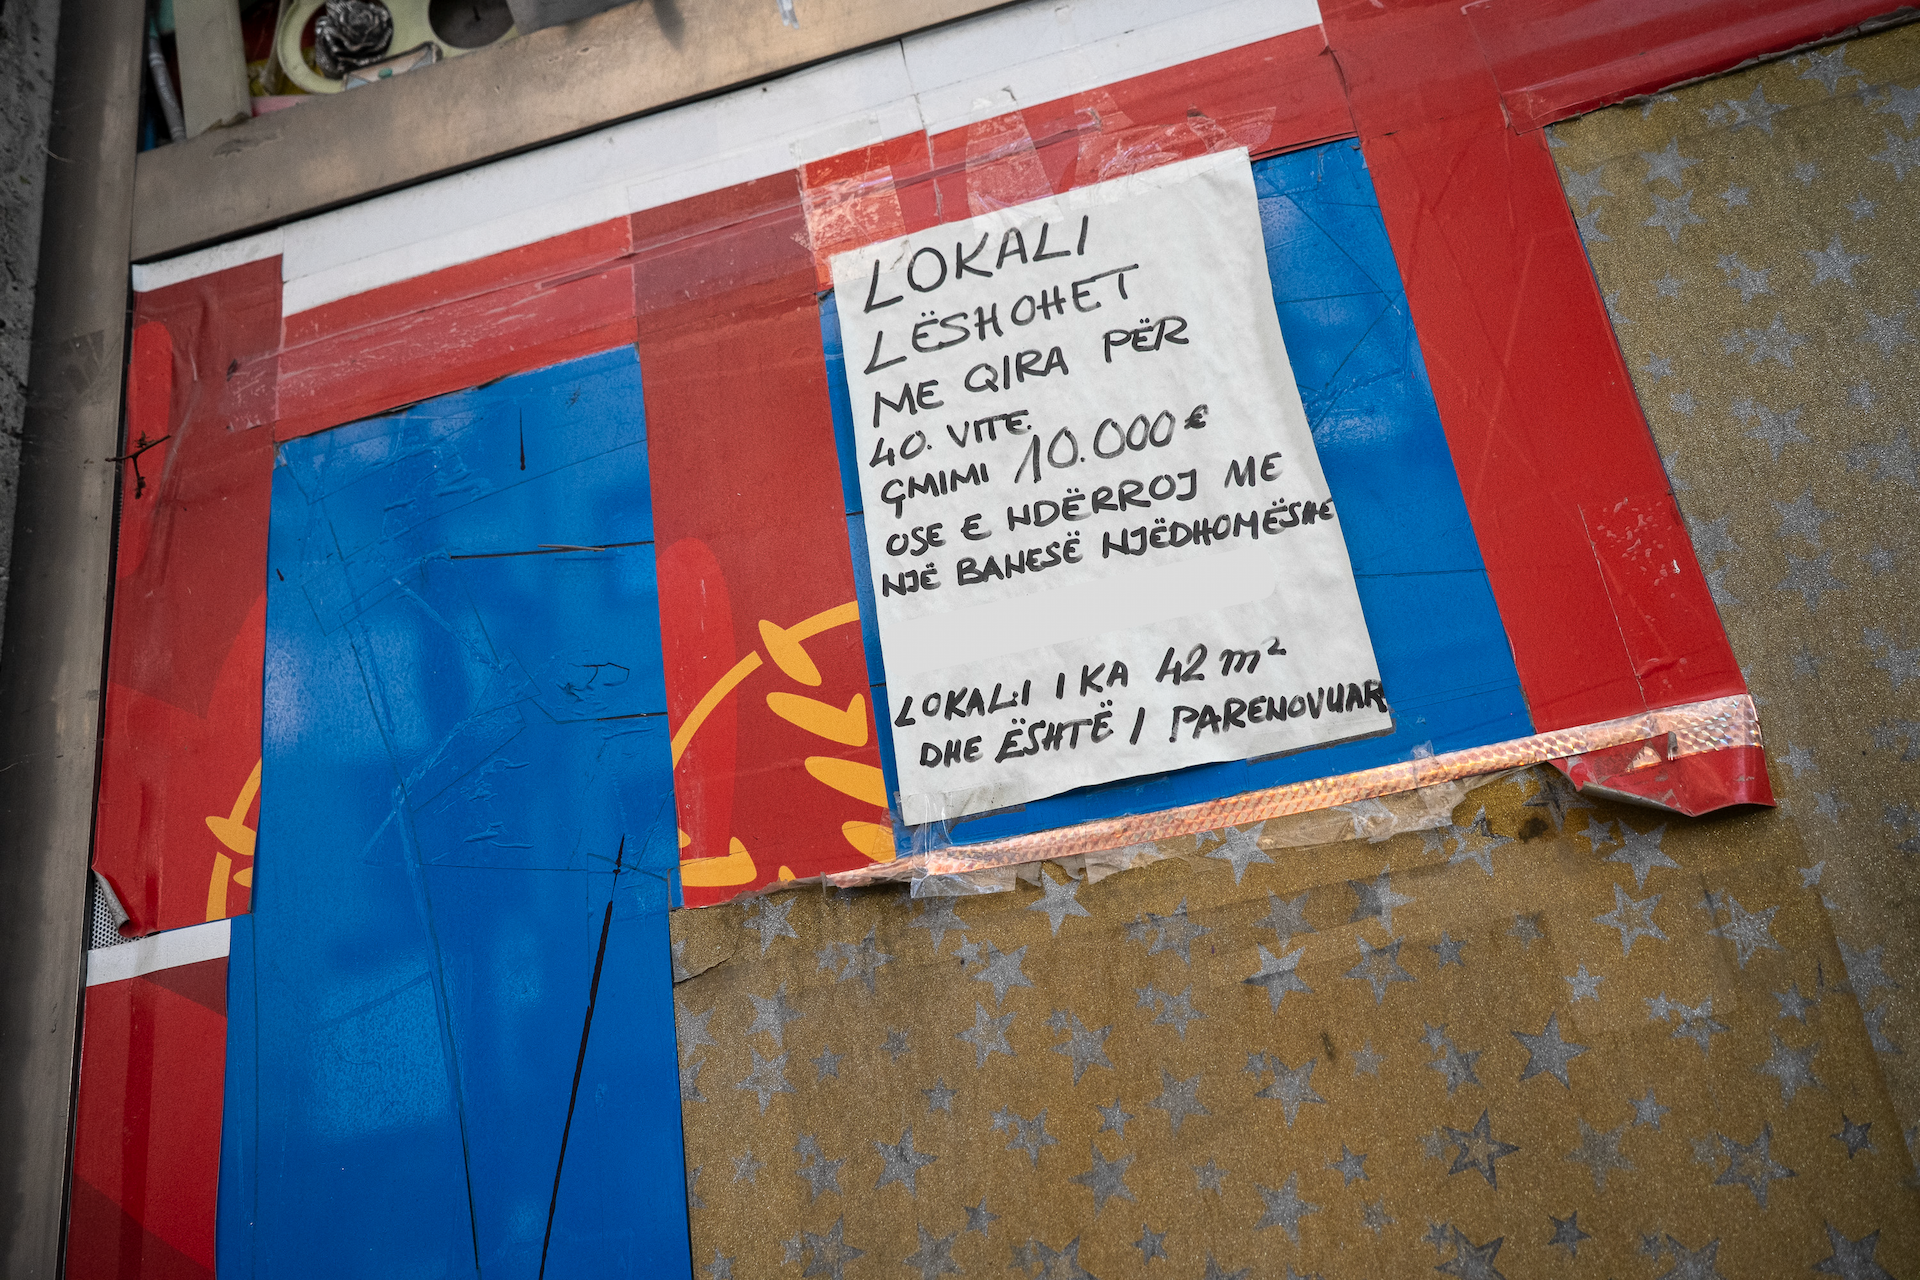 LOKALI
LËSHOHET
ME QIRA PËR
40. VITE.
ÇMIMI 10.000 €
OSE E NDËRROJ ME
NJË BANESË NJËDHOMËSHE
LOKALI I KA 42 m²
DHE ËSHTË I PARENOVUAR